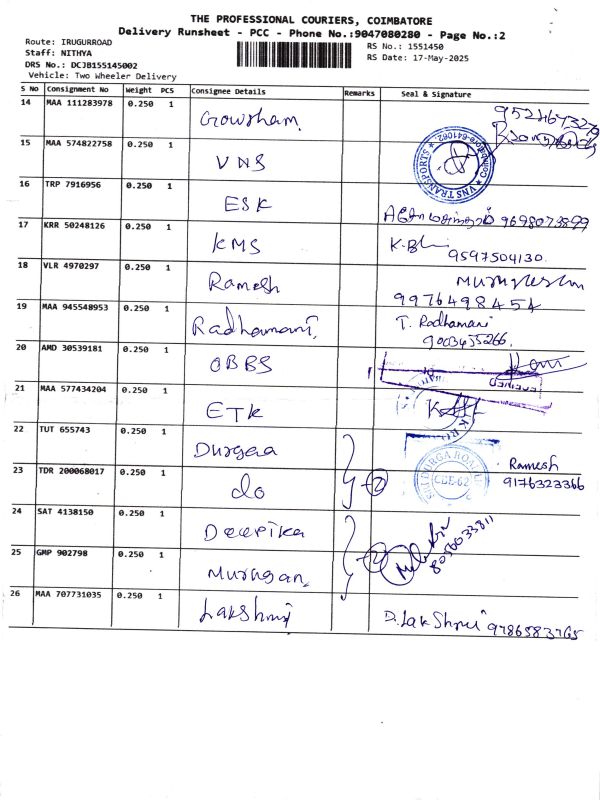 THE PROFESSIONAL COURIERS, COIMBATORE
Delivery Runsheet - PCC - Phone No.:9047080280 - Page No.:2
Route: IRUGURROAD
RS No.: 1551450
Staff: NITHYA
RS Date: 17-May-2025
DRS No.: DCJB155145002
Vehicle: Two Wheeler Delivery
S No Consignment No Weight PCS Consignee Details Remarks Seal & Signature
14 MAA 111283978 0.250 1 Gowsham
15 MAA 574822758 0.250 1 VNS VNS TRANSPORTS Coimbatore-641062
16 TRP 7916956 0.250 1 ESK 9698073899
17 KRR 50248126 0.250 1 KMS 9597504130
18 VLR 4970297 0.250 1 Ramesh 9976498454
19 MAA 945548953 0.250 1 Radhamani T. Radhamani 9003455266
20 AMD 30539181 0.250 1 OBBS
21 MAA 577434204 0.250 1 ETK
22 TUT 655743 0.250 1 Durgaa
23 TDR 200068017 0.250 1 do 2 CBE-62 Ramesh 9176323366
24 SAT 4138150 0.250 1 Deepika
25 GMP 902798 0.250 1 Murugan 2 8056033811
26 MAA 707731035 0.250 1 Lakshmi D. Lakshmi 9786583765